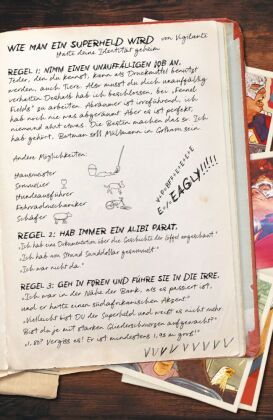 WIE MAN EIN SUPERHELD WIRD von Vigilante
Halte deine Identität geheim
REGEL 1: NIMM EINEN UNAUFFÄLLIGEN JOB AN.
Jeder, den du kennst, kann als Druckmittel benutzt
werden, auch Tiere. Also musst du dich unauffällig
verhalten. Deshalb hab ich beschlossen, bei „Fennel
Fields“ zu arbeiten. Abräumer ist irreführend, ich
hab noch nie was abgeräumt. Aber es ist perfekt,
niemand ahnt etwas. Die Besten machen das so. Ich
hab gehört, Batman soll Müllmann in Gotham sein.
Andere Möglichkeiten:
Hausmeister
Sommelier
Hundeausführer
Fahrradmechaniker
Schäfer
E-E-EAGLY!!!!!
REGEL 2: HAB IMMER EIN ALIBI PARAT.
„Ich hab eine Dokumentation über die Geschichte der Löffel angeschaut“
„Ich hab am Strand Sanddollar gesammelt“
„Ich war nicht da“
REGEL 3: GEH IN FOREN UND FÜHRE SIE IN DIE IRRE.
„Ich war in der Nähe der Bank, als es passiert ist,
und er hatte einen südafrikanischen Akzent“
„Vielleicht bist DU der Superheld und weißt es nicht mehr.
Bist du je mit starken Gliederschmerzen aufgewacht?“
„1,80? Vergiss es! Er ist mindestens 1,95 m groß!“